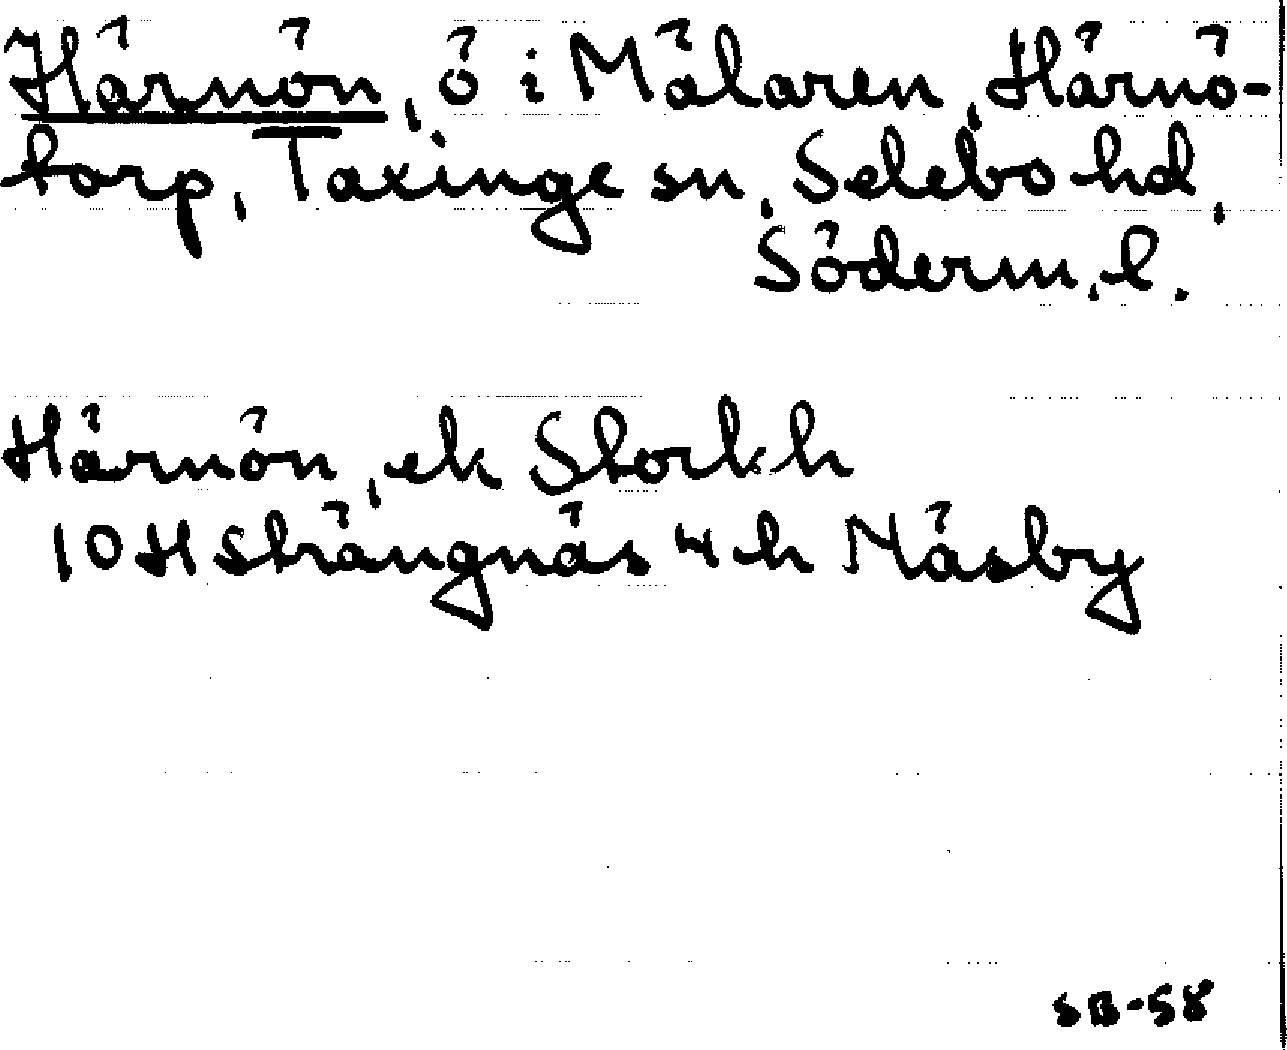 Härnön, ö i Mälaren, Härnö-
torp, Taxinge sn, Selebo hd,
Söderm. l.
Härnön, ek Stockh
10 H Strängnäs 4 h Näsby
SB-58